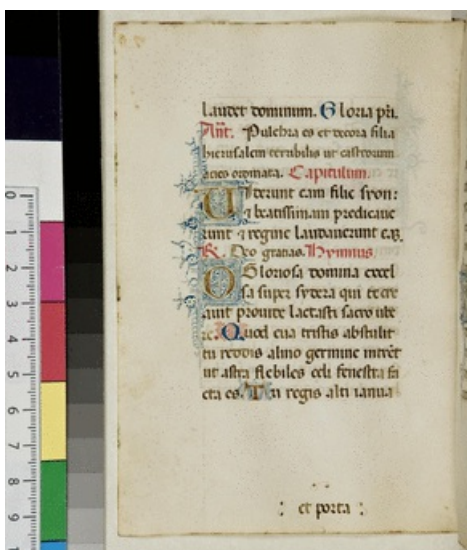 laudet dominum. Gloria pri.
Añt. Pulchra es et decora filia
hierusalem terribilis ut castrorum
acies ordinata. Capitulum.
Uiderunt eam filie syon:
& beatissimam predicaue
runt & regine laudauerunt eaz.
R. Deo gratias. Hymnus
O Gloriosa domina excel
sa super sydera qui te cre
auit prouide lactasti sacro ube
re. Quod eua tristis abstulit
tu reddis almo germine intrēt
ut astra flebiles celi fenestra fa
cta es. Tu regis alti ianua
: et porta :
0 1 2 3 4 5 6 7 8 9